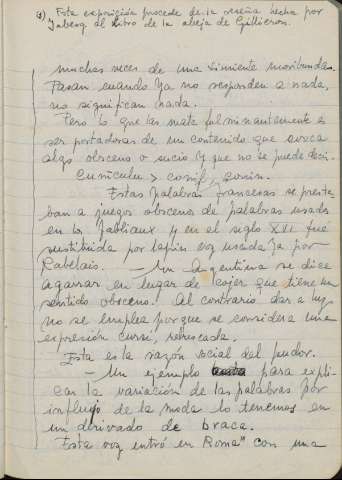 (1) Esta exposición procede de la reseña hecha por
Jaberg al libro de la abeja de Gilliéron.
muchas veces de una simiente moribunda.
Pasan cuando ya no responden a nada,
no significan nada.
Pero lo que las mata fulminantemente es
ser portadoras de un contenido que evoca
algo obsceno o sucio y que no se puede decir.
Cuniculu > conil, conin.
Estas palabras francesas se presta-
ban a juegos obscenos de palabras usados
en los fabliaux y en el siglo XVI fué
sustituida por lapin voz usada ya por
Rabelais. — En Argentina se dice
agarrar en lugar de cojer que tiene un
sentido obsceno. Al contrario dar a luz
no se emplea porque se considera una
expresión cursi, rebuscada.
Esta es la razón social del pudor.
— Un ejemplo para expli-
car la variación de las palabras por
influjo de la moda lo tenemos en
un derivado de braca.
Esta voz entró en Roma con una